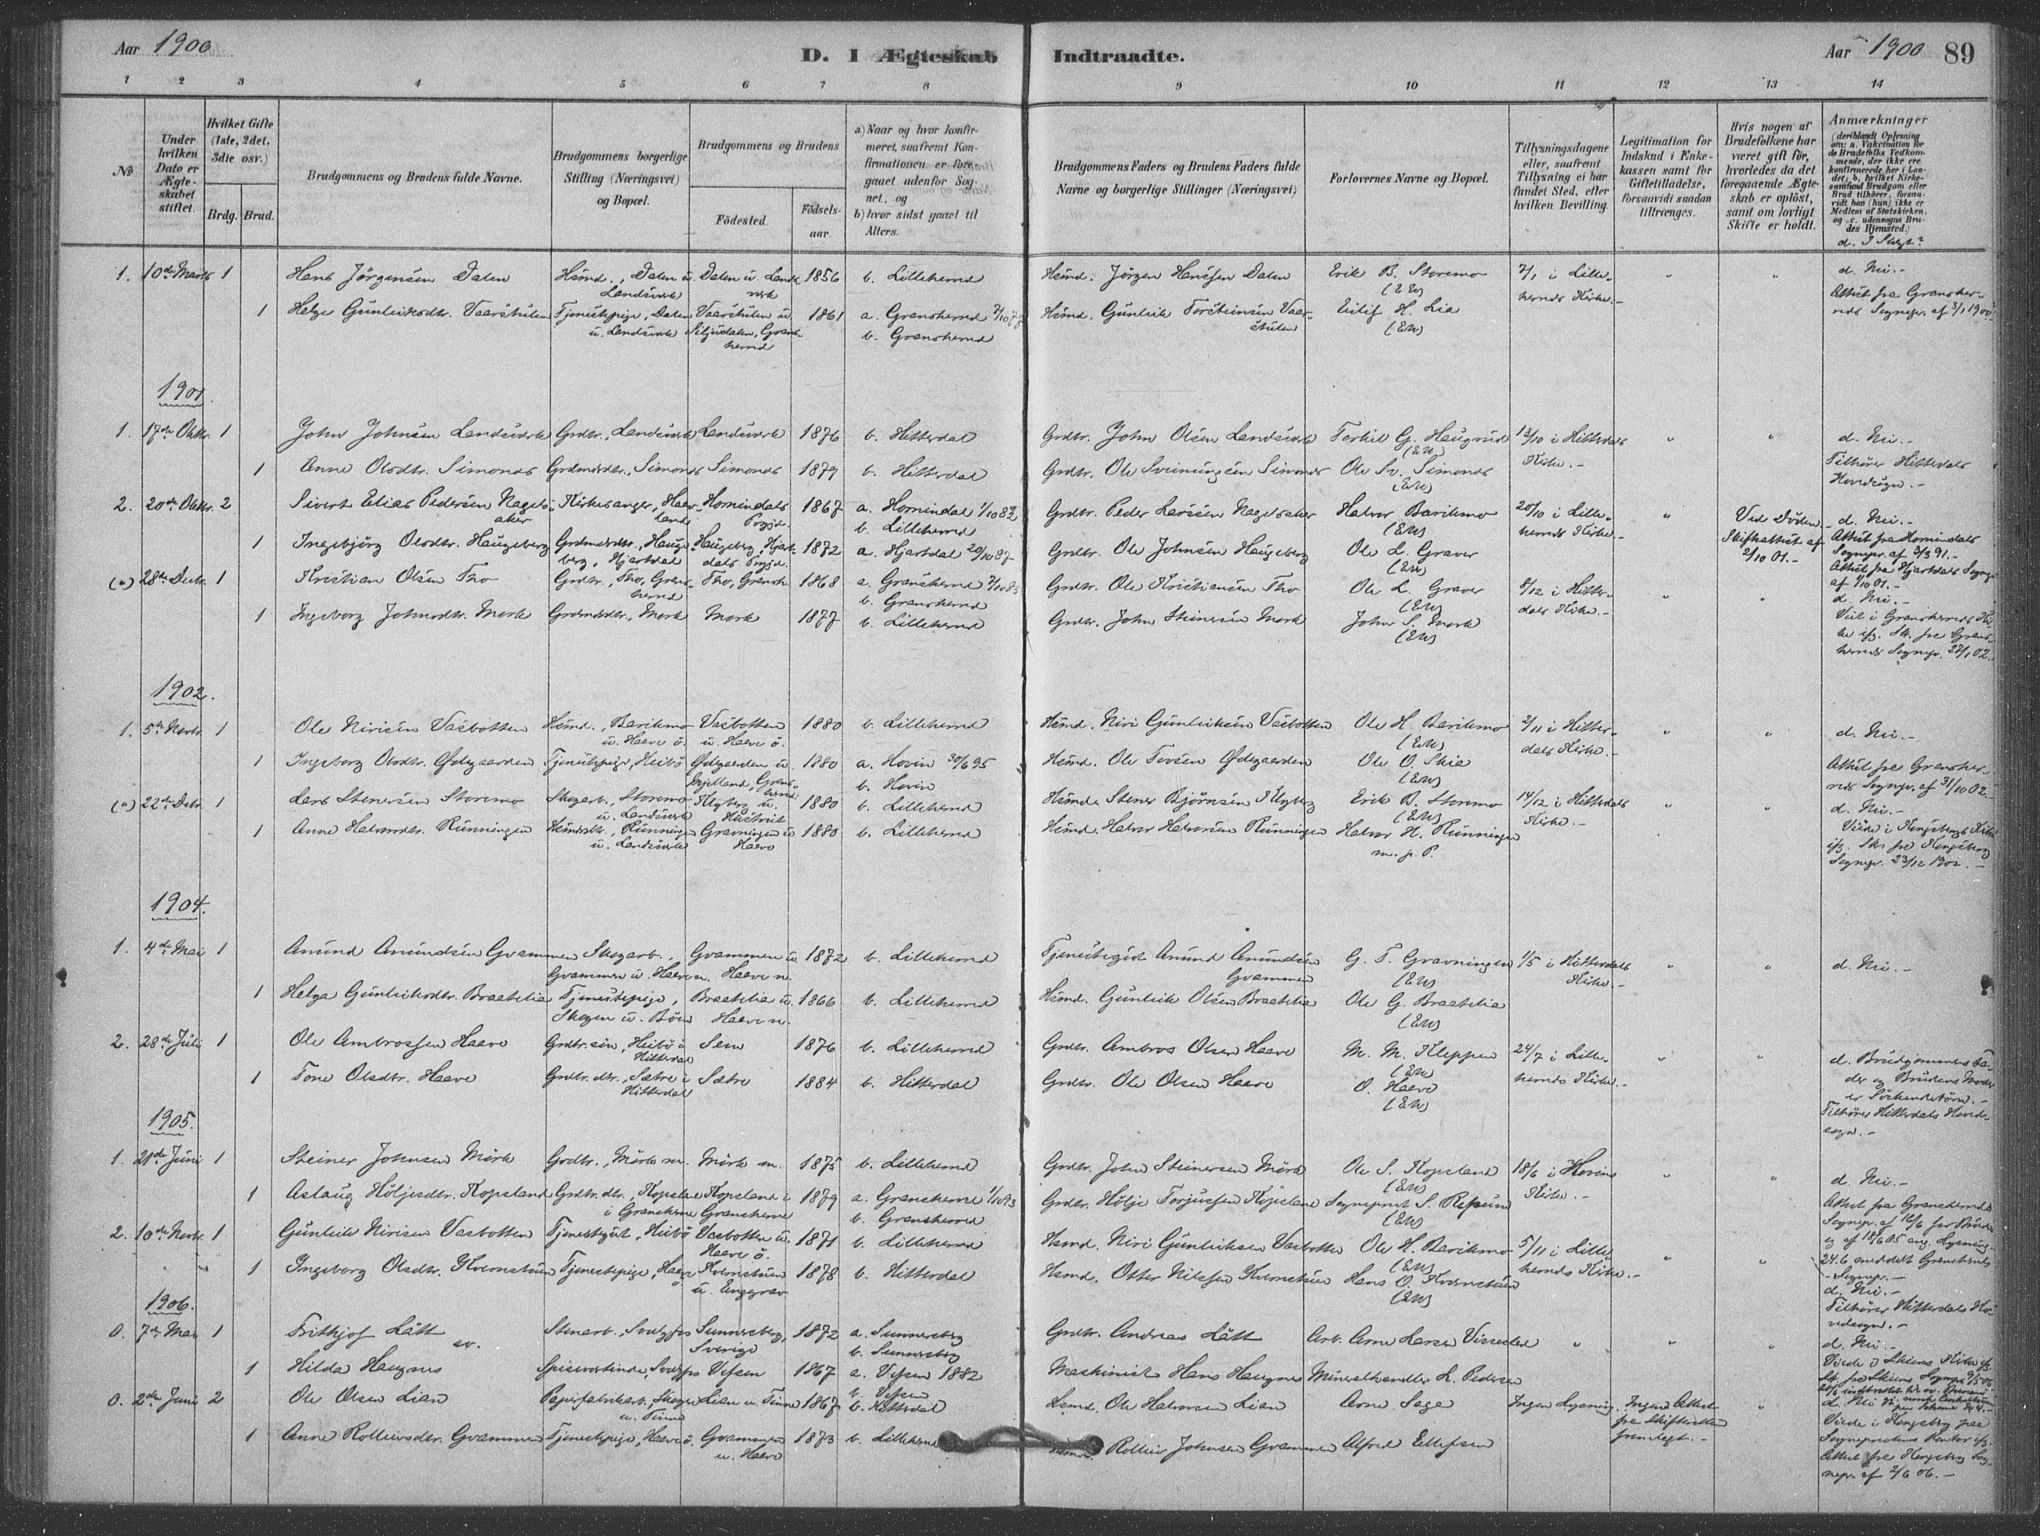 Aar 1900
D. I Ægteskab Indtraadte.
Aar 1900 89
1 2 3 4 5 6 7 8 9 10 11 12 13 14
№
Under hvilken Dato er Ægteskabet stiftet.
Hvilket Gifte (1ste, 2det, 3die osv.)
Brdg. Brud.
Brudgommens og Brudens fulde Navne.
Brudgommens borgerlige Stilling (Næringsvei) og Bopæl.
Brudgommens og Brudens
Fødested.
Fødselsaar.
a) Naar og hvor konfirmeret, saafremt Konfirmationen er foregaaet udenfor Sognet, og
b) hvor sidst gaaet til Alters.
Brudgommens Faders og Brudens Faders fulde Navne og borgerlige Stillinger (Næringsvei)
Forlovernes Navne og Bopæl.
Tillysningsdagene eller, saafremt Tillysning ei har fundet Sted, efter hvilken Bevilling.
Legitimation for Indskud i Enkekassen samt for Giftetilladelse, forsaavidt saadan tiltrænges.
Hvis nogen af Brudefolkene har været gift før, hvorledes da det foregaaende Ægteskab er opløst, samt om lovligt Skifte er holdt.
Anmærkninger
1. 10de Marts 1 Hans Jørgensen Dalen Hsmd., Dalen u. Landsverk Dalen u. Landsverk 1856 b. Lilleherred Hsmd. Jørgen Hansen Dalen Erik B. Storemo (EW) 7/1 i Lilleherreds Kirke.- " " d. Nei.-
1 Helge Gunleiksdtr. Vaarstulen Tjenestepige, Dalen u. Landsverk Vaarstulen u. Siljudalen, Gransherred 1861 a. Gransherred b. Gransherred Hsmd. Gunleik Torsteinsen Vaarstulen Eilif H. Lia (EW) Attest fra Gransherreds Sognepr. af 3/1 1900
1901.
1. 17de Oktbr. 1 John Johnsen Landsverk Grdbr., Landsverk Landsverk 1876 b. Hitterdal Grdbr. John Olsen Landsverk Terkil G. Haugrud (EW) 13/10 i Hitterdals Kirke.- " " d. Nei.-
1 Anne Olsdtr. Simones Grdmdsdtr., Simones Simones 1879 b. Hitterdal Grdbr. Ole Sveinungsen Simones Ole Sv. Simones (EW) Tilhører Hitterdals Hovedsogn.-
2. 20de Oktbr. 2 Sivert Elias Pedersen Nagelsaker Kirkesanger, Haaveland Hornindals Prgjd. 1867 a. Hornindal 1/10 82 b. Lilleherred Grdbr. Peder Larsen Nagelsaker Halvor Barikmo (EW) 20/10 i Lilleherreds Kirke.- " Ved Døden.- Skifteattest af 2/10 01.- d. Nei.- Attest fra Hornindals Sognepr. af 3/3 91.-
1 Ingebjørg Olsdtr. Haugeberg Grdmdsdtr., Haugeberg, Hjartdal Haugeberg, Hjartdals Prgjd. 1872 a. Hjartdal 20/10 87 Grdbr. Ole Johnsen Haugeberg Ole L. Graver (EW) Attest fra Hjartdals Sognepr. af 1/10 01.-
28de Decbr. 1 Kristian Olsen Tho Grdbr., Tho, Gransherred Tho, Gransh. 1868 a. Gransherred b. Gransherred Grdbr. Ole Kristiansen Tho Ole L. Graver (EW) 8/12 i Hitterdals Kirke.- " " d. Nei.-
1 Ingeborg Johnsdtr. Mørk Grdmdsdtr., Mørk Mørk 1877 b. Lilleherred Grdbr. John Steinersen Mørk John S. Mørk (EW) Viet i Gransherreds Kirke
1902.
1. 5te Novbr. 1 Ole Nirisen Vasbotten Hsmd., Barikmo u. Haave ø. Vasbotten u. Haave ø. 1880 b. Lilleherred Hsmd. Niri Gunleiksen Vasbotten Ole H. Barikmo (EW) 2/11 i Hitterdals Kirke.- " " d. Nei.-
1 Ingeborg Olsdtr. Ødegaarden Tjenestepige, Heibø Ødegaarden u. 1880 a. Hovin 30/6 95 b. Hovin Hsmd. Ole Ødegaarden Ole O. Skia (EW) Attest fra Gransherreds Sognepr. af 31/10 02.-
22de Decbr. 1 Lars Stenersen Storemo Skogarb., Storemo u. Landsverk Klyberg u. 1880 b. Lilleherred Hsmd. Stener Bjørnsen Klyberg Erik B. Storemo (EW) 14/12 i Hitterdals Kirke.- " " d. Nei.-
1 Anne Halvorsdtr. Rünningen Hsmdsdtr., Rünningen u. Landsverk Gravningen u. Haave 1880 b. Lilleherred Hsmd. Halvor Halvorsen Rünningen Halvor H. Rünningen m. p. P. Viede i Kongsbergs Kirke
1904.
1. 4de Mai 1 Amund Amundsen Gvammen Skogarb., Gvammen u. Haave n. Gvammen u. Haave n. 1872 b. Lilleherred Tjenestegut Amund Amundsen Gvammen G. T. Gravningen (EW) 1/5 i Hitterdals Kirke.- " " d. Nei.-
1 Helga Gunleiksdtr. Braatelia Tjenestepige, Skogen u. Bøen Braatelia u. Haave n. 1866 b. Lilleherred Hsmd. Gunleik Olsen Braatelia Ole G. Braatelia (EW)
2. 28de Juli 1 Ole Ambrossen Haave Grdbr.søn, Heibø i Hitterdal Sem 1876 b. Lilleherred Grdbr. Ambros Olsen Haave M. M. Kleppen (EW) 24/7 i Lilleherreds Kirke.- " " d. Brudgommens Fader og Brudens Moder er Søskendebørn.-
1 Tone Olsdtr. Haave Grdbr. dtr., Sætre i Hitterdal Sætre 1884 b. Hitterdal Grdbr. Ole Olsen Haave O. Haave (EW) Tilhører Hitterdals Hovedsogn.-
1905.
1. 21de Juni 1 Steiner Johnsen Mørk Grdbr., Mørk m. Mørk m. 1875 b. Lilleherred Grdbr. John Steinersen Mørk Ole S. Kopsland (EW) 18/6 i Hovins Kirke.- " " d. Nei.-
1 Aslaug Høljesdtr. Kopsland Grdbr.dtr., Kopsland i Gransherred Kopsland i Gransherred 1879 a. Gransherred b. Gransherred Grdbr. Hølje Torjussen Kopsland Sogneprest S. (EW) Attest fra Gransherreds Sognepr.
2. 10de Novbr. 1 Gunleik Nirisen Vasbotten Tjenestegut, Heibø Vasbotten u. Haave ø. 1871 b. Lilleherred Hsmd. Niri Gunleiksen Vasbotten Ole H. Barikmo (EW) 5/11 i Lilleherreds Kirke.- " " d. Nei.-
1 Ingeborg Olsdtr. Kvernstuen Tjenestepige, Haave ø. Kvernstuen u. 1878 b. Hitterdal Hsmd. Otter Nilssen Kvernstuen Hans O. Kvernstuen (EW) Tilhører Hitterdals Hovedsogn.-
1906.
0. 7de Mai 1 Frithjof Lätt sv. Stenarb., Svælgfos Sunnersberg, Sverige 1872 a. Sunnersberg b. Sunnersberg Grdbr. Andreas Lätt Arb. Arne Larsen " " d. Nei.-
1 Hilda Haugnes Spisevertinde, Svælgfos Vefsen 1867 a. Vefsen 1882 b. Vefsen Maskinist Hans Haugnes Mineralhandler L. Pedersen Viede i Skiens Kirke
0. 2den Juni 2 Ole Olsen Lian Papirfabrikarb., Skogen u. Tinne Lian u. Tinne 1867 b. Hitterdal Hsmd. Ole Halvorsen Lian Arne Sage Ingen Lysning. Ingen Attest fra Skifteretten fremlagt.- " d. Nei
1 Anne Rolleivsdtr. Gvammen Tjenestepige, Haave ø. Gvammen u. Haave 1873 b. Lilleherred Hsmd. Rolleiv Johnsen Gvammen Alfred Ellefsen Viede i Kongsberg